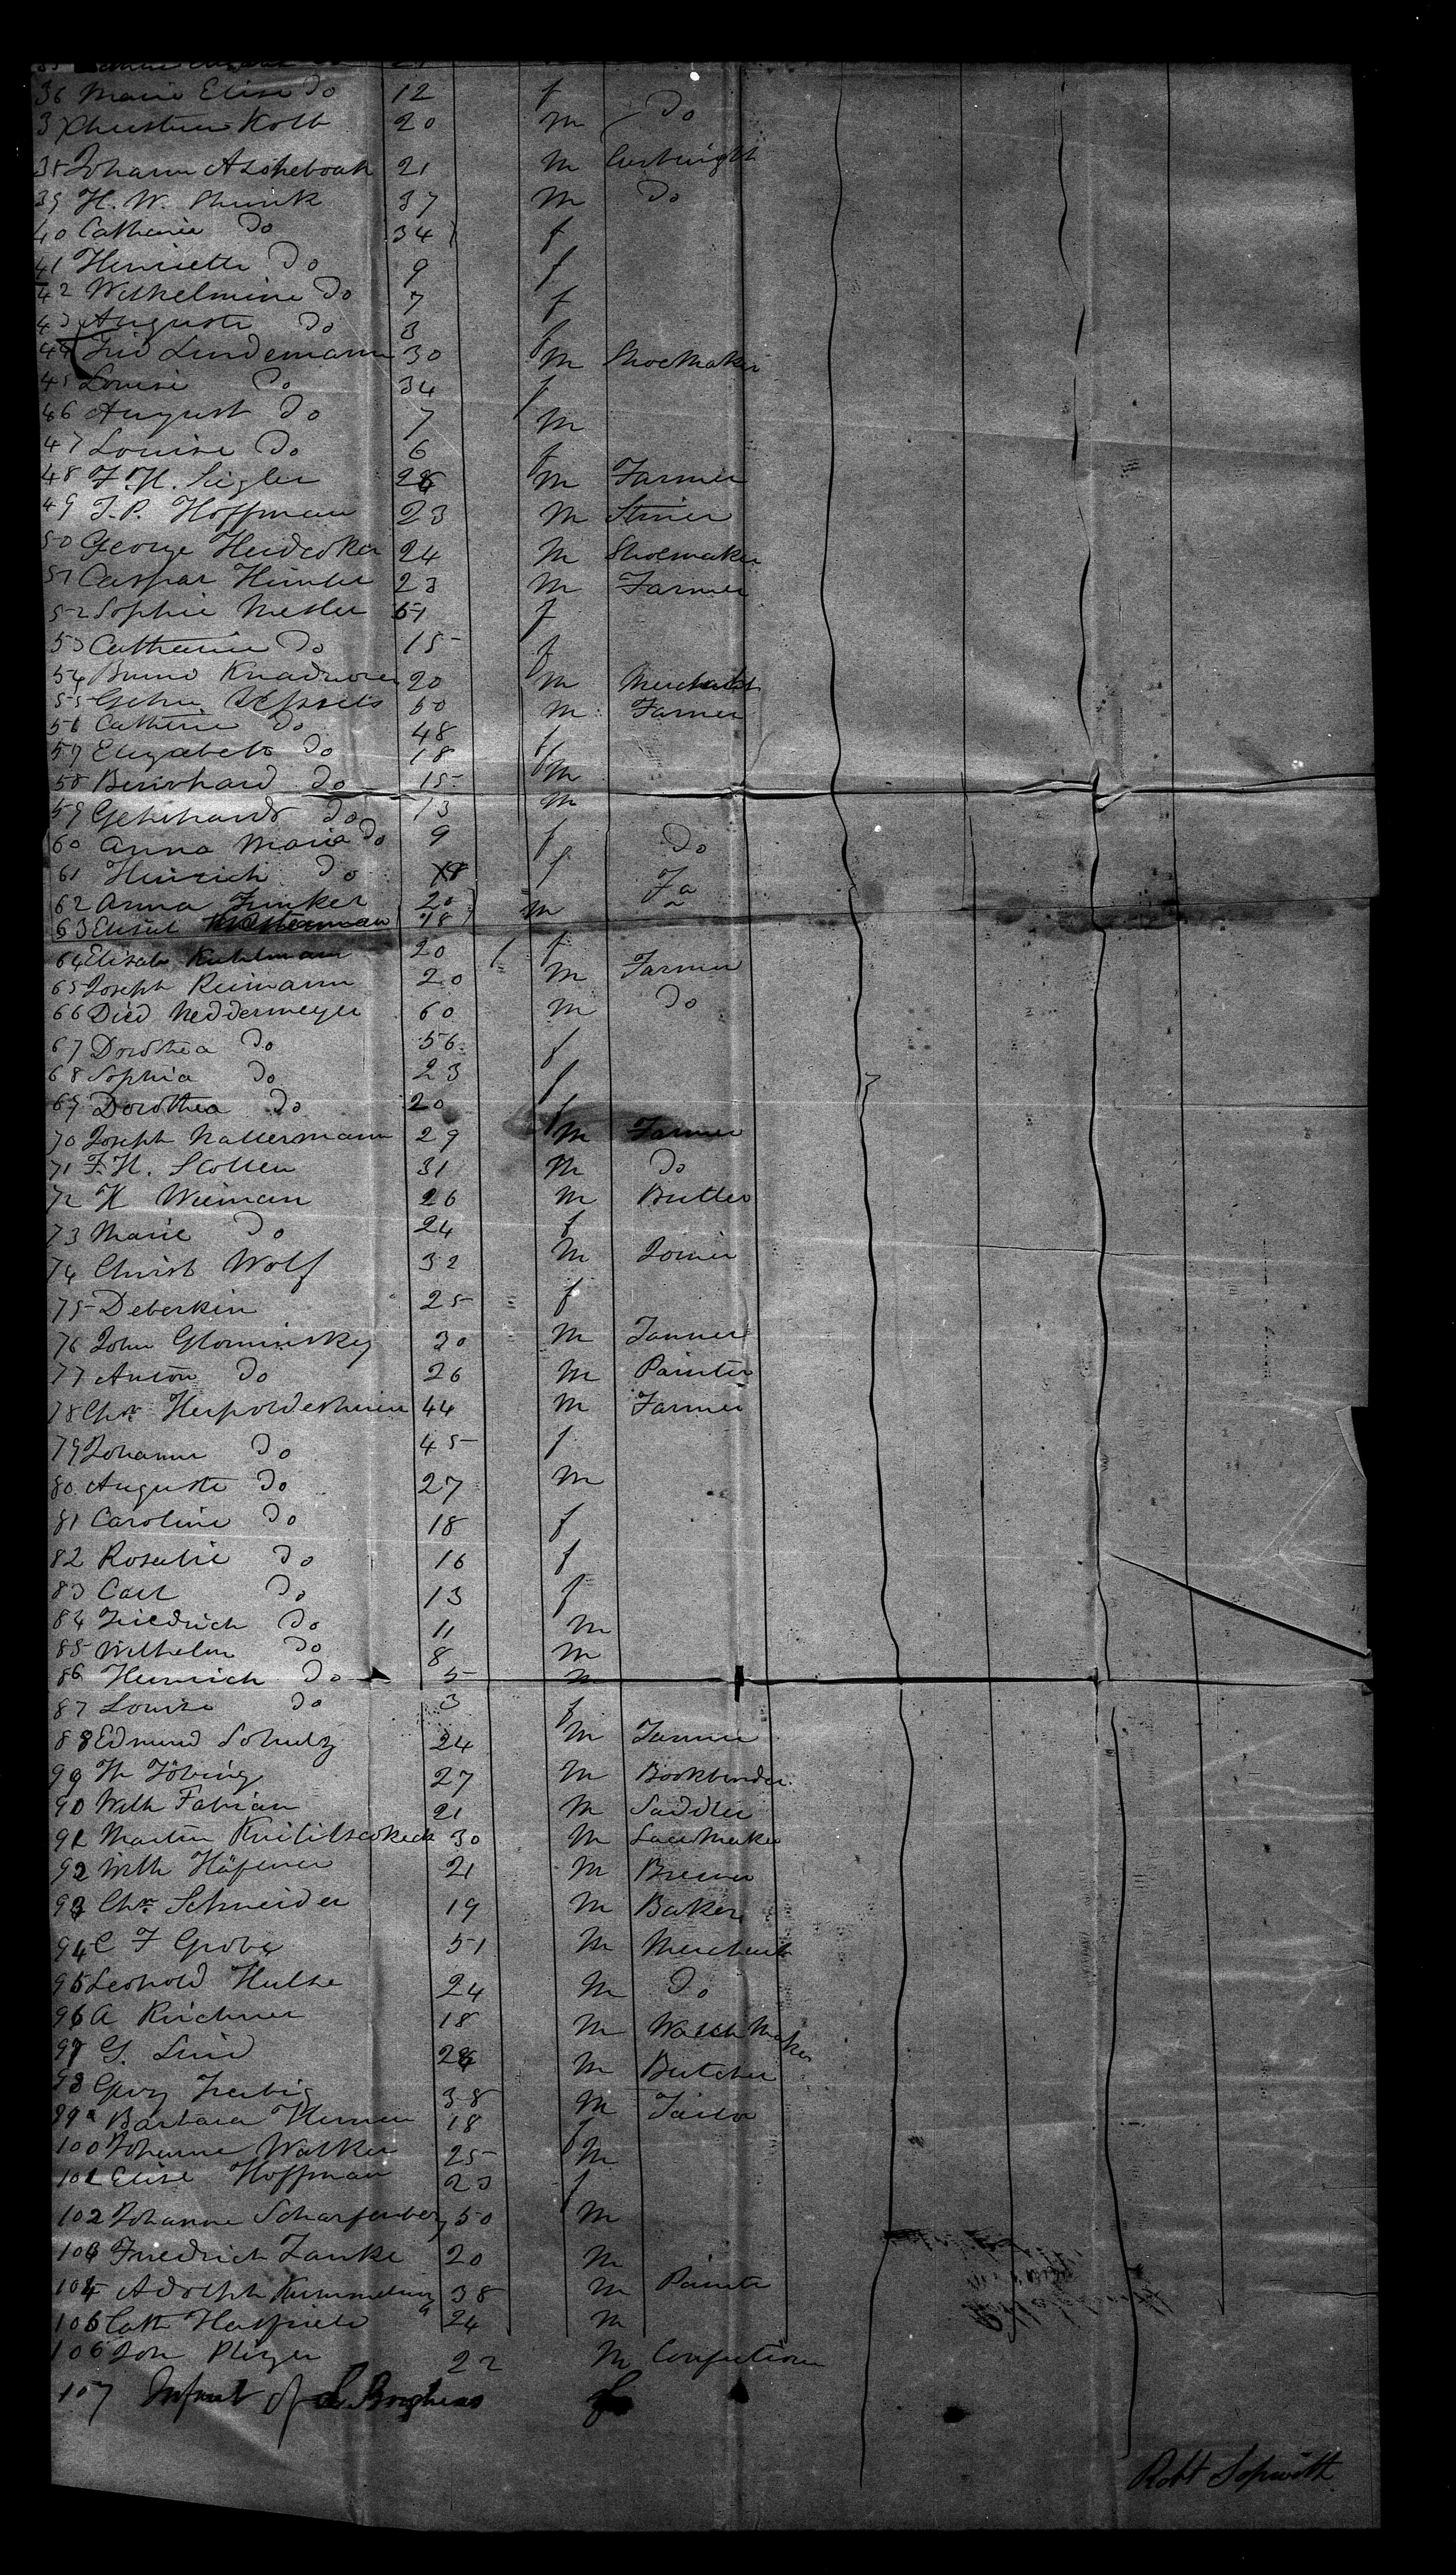 36 Marie Elise Do 12 f
37 Christian Kolb 20 m Do
38 Johann 21 m Cartwright
39 H. W. Shunk 37 m Do
40 Catherine Do 34 f
41 Henriette Do 9 f
42 Wilhelmine Do 7 f
43 Auguste Do 3 f
44 Frid Lindemann 30 m Shoemaker
45 Louise Do 34 f
46 August Do 7 m
47 Louise Do 6 f
48 F. H. Siegler m Farmer
49 J. P. Hoffman 23 m
50 George 24 m Shoemaker
51 Caspar 23 m Farmer
52 Sophie f
53 Catharine Do 15 f
54 Bruno 20 m Merchant
55 50 m Farmer
56 Catherine Do 48 f
57 Elizabeth Do 18 f
58 Bernhard Do 15 m
59 Gerhard Do 13 m
60 Anna Maria Do 9 f Do
61 Heinrich Do f
62 Anna Junker 20 m
63 18
64 Elisab Kuhlmann 20 f
65 Joseph Reimann 20 m Farmer
66 Died Neddermeyer 60 m Do
67 Dorothea Do 56 f
68 Sophia Do 23 f
69 Dorothea Do 20 f
70 Joseph Nattermann 29 m Farmer
71 F. H. 31 m Do
72 H Wieman 26 m
73 Marie Do 24 f
74 Christ Wolf 32 m Joiner
75 Deberkin 25 f
76 John Glominsky 30 m Tanner
77 Anton Do 26 m Painter
78 Chr Herpoldesheimer 44 m Farmer
79 Johanne Do 45 f
80 Auguste Do 27 m
81 Caroline Do 18 f
82 Rosalie Do 16 f
83 Carl Do 13 f
84 Friedrich Do 11 m
85 Wilhelm Do 8 m
86 Heinrich Do 5 m
87 Louise Do 3 f
88 Edmund Schulz 24 m
89 27 m Bookbinder
90 Wilh Fabian 21 m Saddler
91 Martin 30 m Lacemaker
92 Wilh Häfener 21 m Brewer
93 Chr Schneider 19 m Baker
94 C F Grobe 51 m Merchant
95 Leopold Hulse 24 m Do
96 A Kirchner 18 m Watchmaker
97 G. Lind m Butcher
98 38 m Tailor
99 Barbara 18 f
100 Johanne Walker 25 m
101 Elise Hoffman 23 f
102 Johanne Scharfenberg 50 m
103 Friedrich Zanke 20 m
104 Adolph 38 m Painter
105 Cath 24 m
106 Joh 22 m Confectioner
107 Infant of f
Robt Sopwith